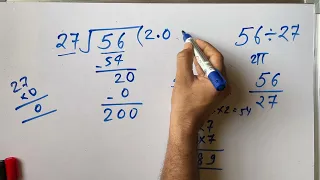 27 ) 56 ( 2.0
- 54
20
- 0
200
27
× 0
0
56 ÷ 27
या
56
27
× 2 = 54
× 7
89